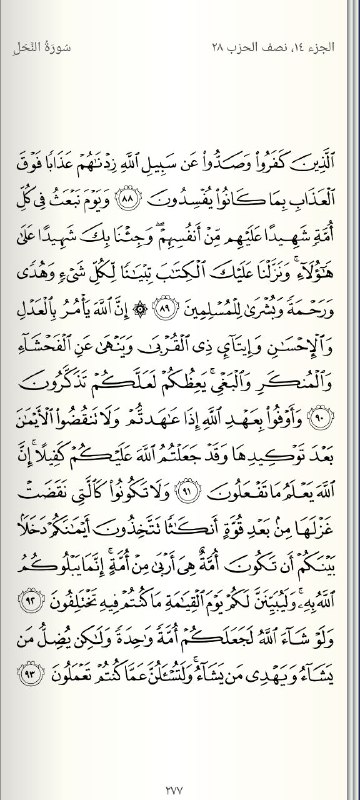 الجزء ١٤، نصف الحزب ٢٨
سُورَةُ النَّحْلِ
الَّذِينَ كَفَرُوا۟ وَصَدُّوا۟ عَن سَبِيلِ اللَّهِ زِدْنَٰهُمْ عَذَابًا فَوْقَ
الْعَذَابِ بِمَا كَانُوا۟ يُفْسِدُونَ ٨٨ وَيَوْمَ نَبْعَثُ فِى كُلِّ
أُمَّةٍ شَهِيدًا عَلَيْهِم مِّنْ أَنفُسِهِمْ ۖ وَجِئْنَا بِكَ شَهِيدًا عَلَىٰ
هَٰٓؤُلَآءِ ۚ وَنَزَّلْنَا عَلَيْكَ الْكِتَٰبَ تِبْيَٰنًا لِّكُلِّ شَىْءٍ وَهُدًى
وَرَحْمَةً وَبُشْرَىٰ لِلْمُسْلِمِينَ ٨٩ ۞ إِنَّ اللَّهَ يَأْمُرُ بِالْعَدْلِ
وَالْإِحْسَٰنِ وَإِيتَآئِ ذِى الْقُرْبَىٰ وَيَنْهَىٰ عَنِ الْفَحْشَآءِ
وَالْمُنكَرِ وَالْبَغْىِ ۚ يَعِظُكُمْ لَعَلَّكُمْ تَذَكَّرُونَ
٩٠ وَأَوْفُوا۟ بِعَهْدِ اللَّهِ إِذَا عَٰهَدتُّمْ وَلَا تَنقُضُوا۟ الْأَيْمَٰنَ
بَعْدَ تَوْكِيدِهَا وَقَدْ جَعَلْتُمُ اللَّهَ عَلَيْكُمْ كَفِيلًا ۚ إِنَّ
اللَّهَ يَعْلَمُ مَا تَفْعَلُونَ ٩١ وَلَا تَكُونُوا۟ كَالَّتِى نَقَضَتْ
غَزْلَهَا مِنۢ بَعْدِ قُوَّةٍ أَنكَٰثًا تَتَّخِذُونَ أَيْمَٰنَكُمْ دَخَلًۢا
بَيْنَكُمْ أَن تَكُونَ أُمَّةٌ هِىَ أَرْبَىٰ مِنْ أُمَّةٍ ۚ إِنَّمَا يَبْلُوكُمُ
اللَّهُ بِهِۦ ۚ وَلَيُبَيِّنَنَّ لَكُمْ يَوْمَ الْقِيَٰمَةِ مَا كُنتُمْ فِيهِ تَخْتَلِفُونَ ٩٢
وَلَوْ شَآءَ اللَّهُ لَجَعَلَكُمْ أُمَّةً وَٰحِدَةً وَلَٰكِن يُضِلُّ مَن
يَشَآءُ وَيَهْدِى مَن يَشَآءُ ۚ وَلَتُسْـَٔلُنَّ عَمَّا كُنتُمْ تَعْمَلُونَ ٩٣
٢٧٧